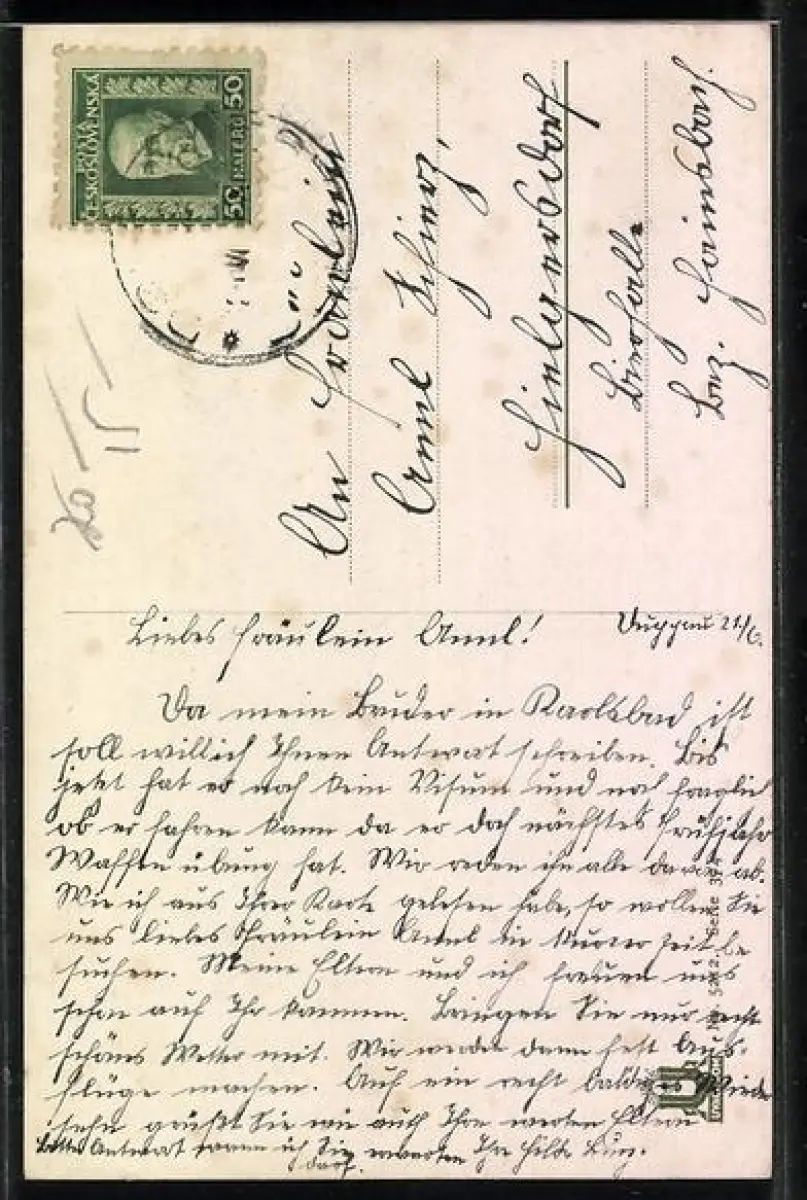 POŠTA
ČESKOSLOVENSKÁ
50 HALÉŘŮ 50
An Fräulein
Anni Schierz,
Hielgersdorf
Bierhalle
Bez. Hainsbach.
20 –
15 –
Liebes Fräulein Annl! Duppau 21/6.
Da mein Bruder in Karlsbad ist
soll will ich Ihnen Antwort schreiben. Bis
jetzt hat er noch kein Visum und noch fraglich
ob er fahren kann da er doch nächstes Frühjahr
Waffenübung hat. Wir reden ihn alle davon ab.
Wie ich aus Ihrer Karte gelesen habe, so wollen Sie
uns liebes Fräulein Annl in kurzer Zeit be
suchen. Meine Eltern und ich freuen uns
schon auf Ihr kommen. Bringen Sie nur recht
schönes Wetter mit. Wir werden dann fest Aus-
flüge machen. Auf ein recht baldiges Wieder
sehn grüßt Sie wie auch Ihre werten Eltern
Bitte Antwort wann ich Sie erwarten Ihr Hilde
darf.
Serie